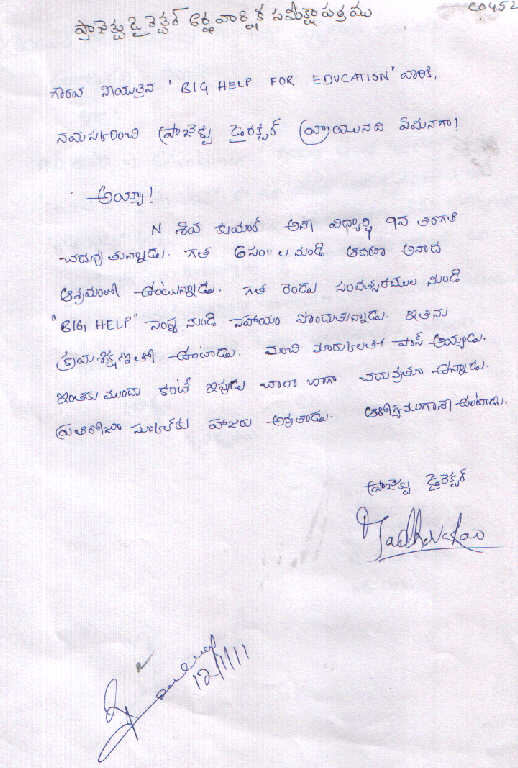 C0452
ప్రాజెక్టు డైరెక్టర్ అర్థ వార్షిక సమీక్షా పత్రము
గౌరవ నీయులైన "BIG HELP FOR EDUCATION" వారికి,
నమస్కరించి ప్రాజెక్టు డైరెక్టర్ వ్రాయునది ఏమనగా!
అయ్యా!
N శివ కుమార్ అను విద్యార్థి 9వ తరగతి
చదువు తున్నాడు. గత 6సం॥ల నుండి అనాద
ఆశ్రమంలో ఉంటున్నాడు. గత రెండు సంవత్సరముల నుండి
"BIG HELP" సంస్థ నుండి సహాయం పొందుతున్నాడు. ఇతను
క్రమశిక్షణతో ఉంటాడు. మంచి మార్కులతో పాస్ అయ్యాడు.
ఇంతకు ముందు కంటే ఇప్పుడు చాలా బాగా చదువుతూ ఉన్నాడు.
ప్రతిరోజూ స్కూల్‌కు హాజరు అవుతాడు. ఆరోగ్యముగా ఉంటాడు.
ప్రాజెక్టు డైరెక్టర్
12/1/11